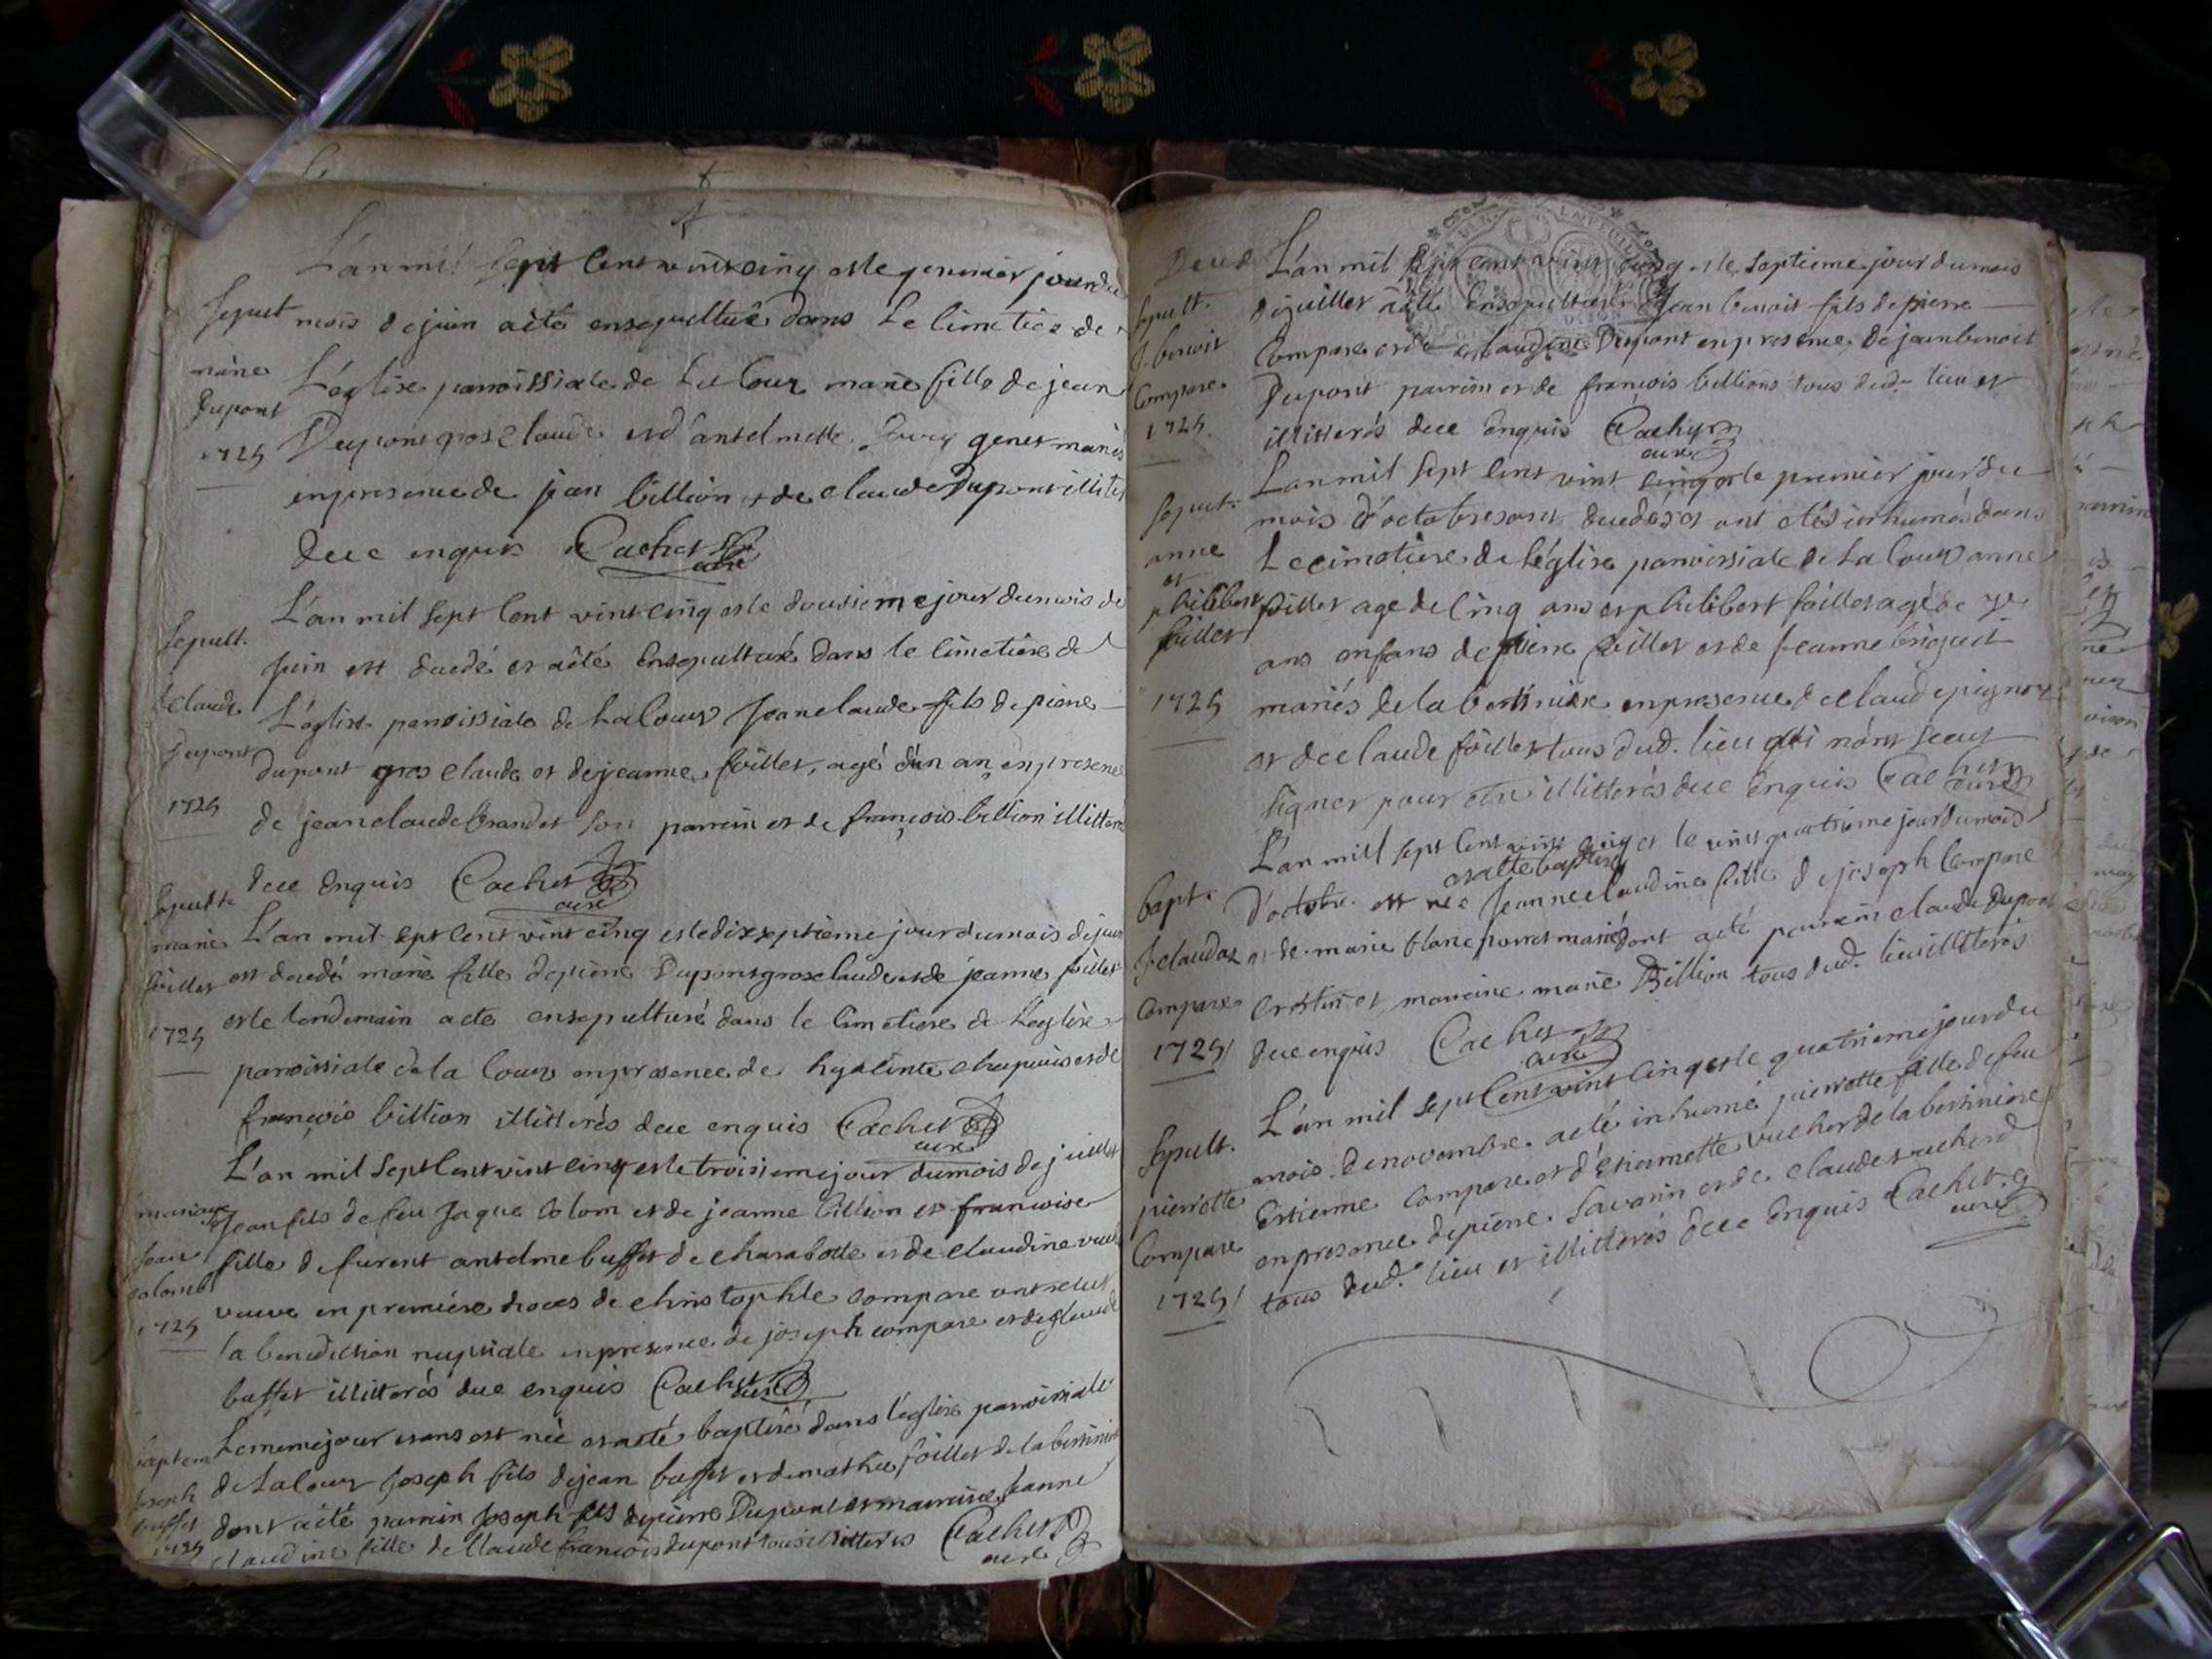 L'an mil sept cent vint cinq et le premier jour du
Sepult mois de juin a été ensepulturé dans Le cimetiere de
marie L'église parroissiale de La Coux marie fille de jean
Dupont
1725 Dupont gros claude et d'antelmette genet mariés
en presence de jean billion et de claude Dupont illite
de ce enquis Cachet
curé
L'an mil sept cent vint cinq et le dousiemejour du mois de
Sepult. Juin est decedé et a été Ensepulturé dans le cimetiere de
J claude L'église paroissiale de La Coux Jean claude fils de pierre
Dupont dupont gros claude et de jeanne foillet, agé d'un an, en presence
1725 de jean claude brandet son parrein et de françois billion illitteré
de ce Enquis Cachet
curé
Sepult
marie L'an mil sept cent vint cinq et le dix septième jour du mois de juin
foillet est decedé marie fille de pierre Dupont gros claude et de jeanne foillet
1725 et le lendemain a eté ensepulturé dans le cimetiere de L'eglise
paroissiale de la Coux en presence de hyacinte chapuis et de
françois billion illitterés de ce enquis Cachet
curé
L'an mil Sept Cent vint cinq et le troisieme jour du mois de juillet
mariage Jean fils de feu Jaque Colom et de jeanne billion et francoise
Jean fille de furent antelme buffet de charabotte et de claudine
colomb
1725 veuve en premiére noces de christophle compare ont reçut
la benediction nuptiale en presence de joseph compare et de claude
buffet illitterés de ce enquis Cachet
curé
baptem Le meme jour et ans est née et a eté baptisé dans l'église parroissiale
Joseph de La Coux Joseph fils de jean buffet et de mathie foillet de la bertiniere
buffet dont a été parrein Joseph fils de pierre Dupont et marreine Jeanne
1725 claudine fille de Claude françois dupont tous illitterés Cachet
curé
L'an mil sept cent vint cinq et le septieme jour du mois
Sepult. de juillet a été Ensepulturé Jean benoit fils de pierre
J. benoit Compare et de claudine Dupont en presence De jean benoit
Compare Dupont parrein et de françois billions tous dud. lieu et
1725 illitterés de ce Enquis Cachet
curé
L'an mil sept cent vint cinq et le premier jour du
Sepult. mois d'octobre sont decedés et ont etés inhumés dans
anne Le cimetiere de L'église parroissiale de La Coux anne
et
philibert foillet agé de cinq ans et philibert foillet agé de
foillet ans enfans de pierre foillet et de Jeanne
1725 mariés de la bertiniere en presence de claude
et de claude foillet tous dud. lieu qui n'ont sceut
signer pour etre illitterés de ce Enquis Cachet
curé
L'an mill sept cent vint cinq et le vint quatrieme jour du mois
et a eté baptisé
bapt. D'octobre est nee Jeanne claudine fille de joseph Compare
J claudae et de marie blanc mariés dont a eté parrein claude Dupont
Compare Crétin et marreine marie Billion tous dud. lieu illitterés
1725 de ce enquis Cachet
curé
L'an mil sept cent vint cinq et le quatrieme jour du
Sepult. mois de novembre a eté inhumé pierrette fille de feu
pierrette Estienne Compare et d'etiennette vucher de la bertiniere
Compare en presence de pierre Savarin et de claude vucherd
1725 tous dud. lieu et illitterés de ce Enquis Cachet
curé